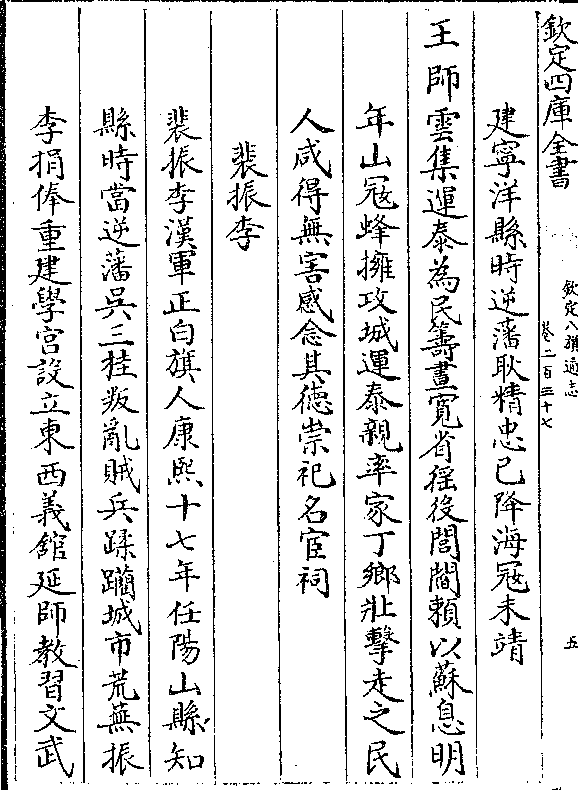 欽定四庫全書
欽定八旗通志
卷二百三十七
五
建寧洋縣時逆藩耿精忠已降海宼未靖
王師雲集運泰為民籌畫寛省徭役閭閻頼以蘇息明
年山宼蜂擁攻城運泰親率家丁鄉壯擊走之民
人咸得無害感念其徳崇祀名宦祠
裴振李
裴振李漢軍正白旗人康熙十七年任陽山縣知
縣時當逆藩吳三桂叛亂賊兵蹂躪城市荒蕪振
李捐俸重建學宫設立東西義館延師教習文武